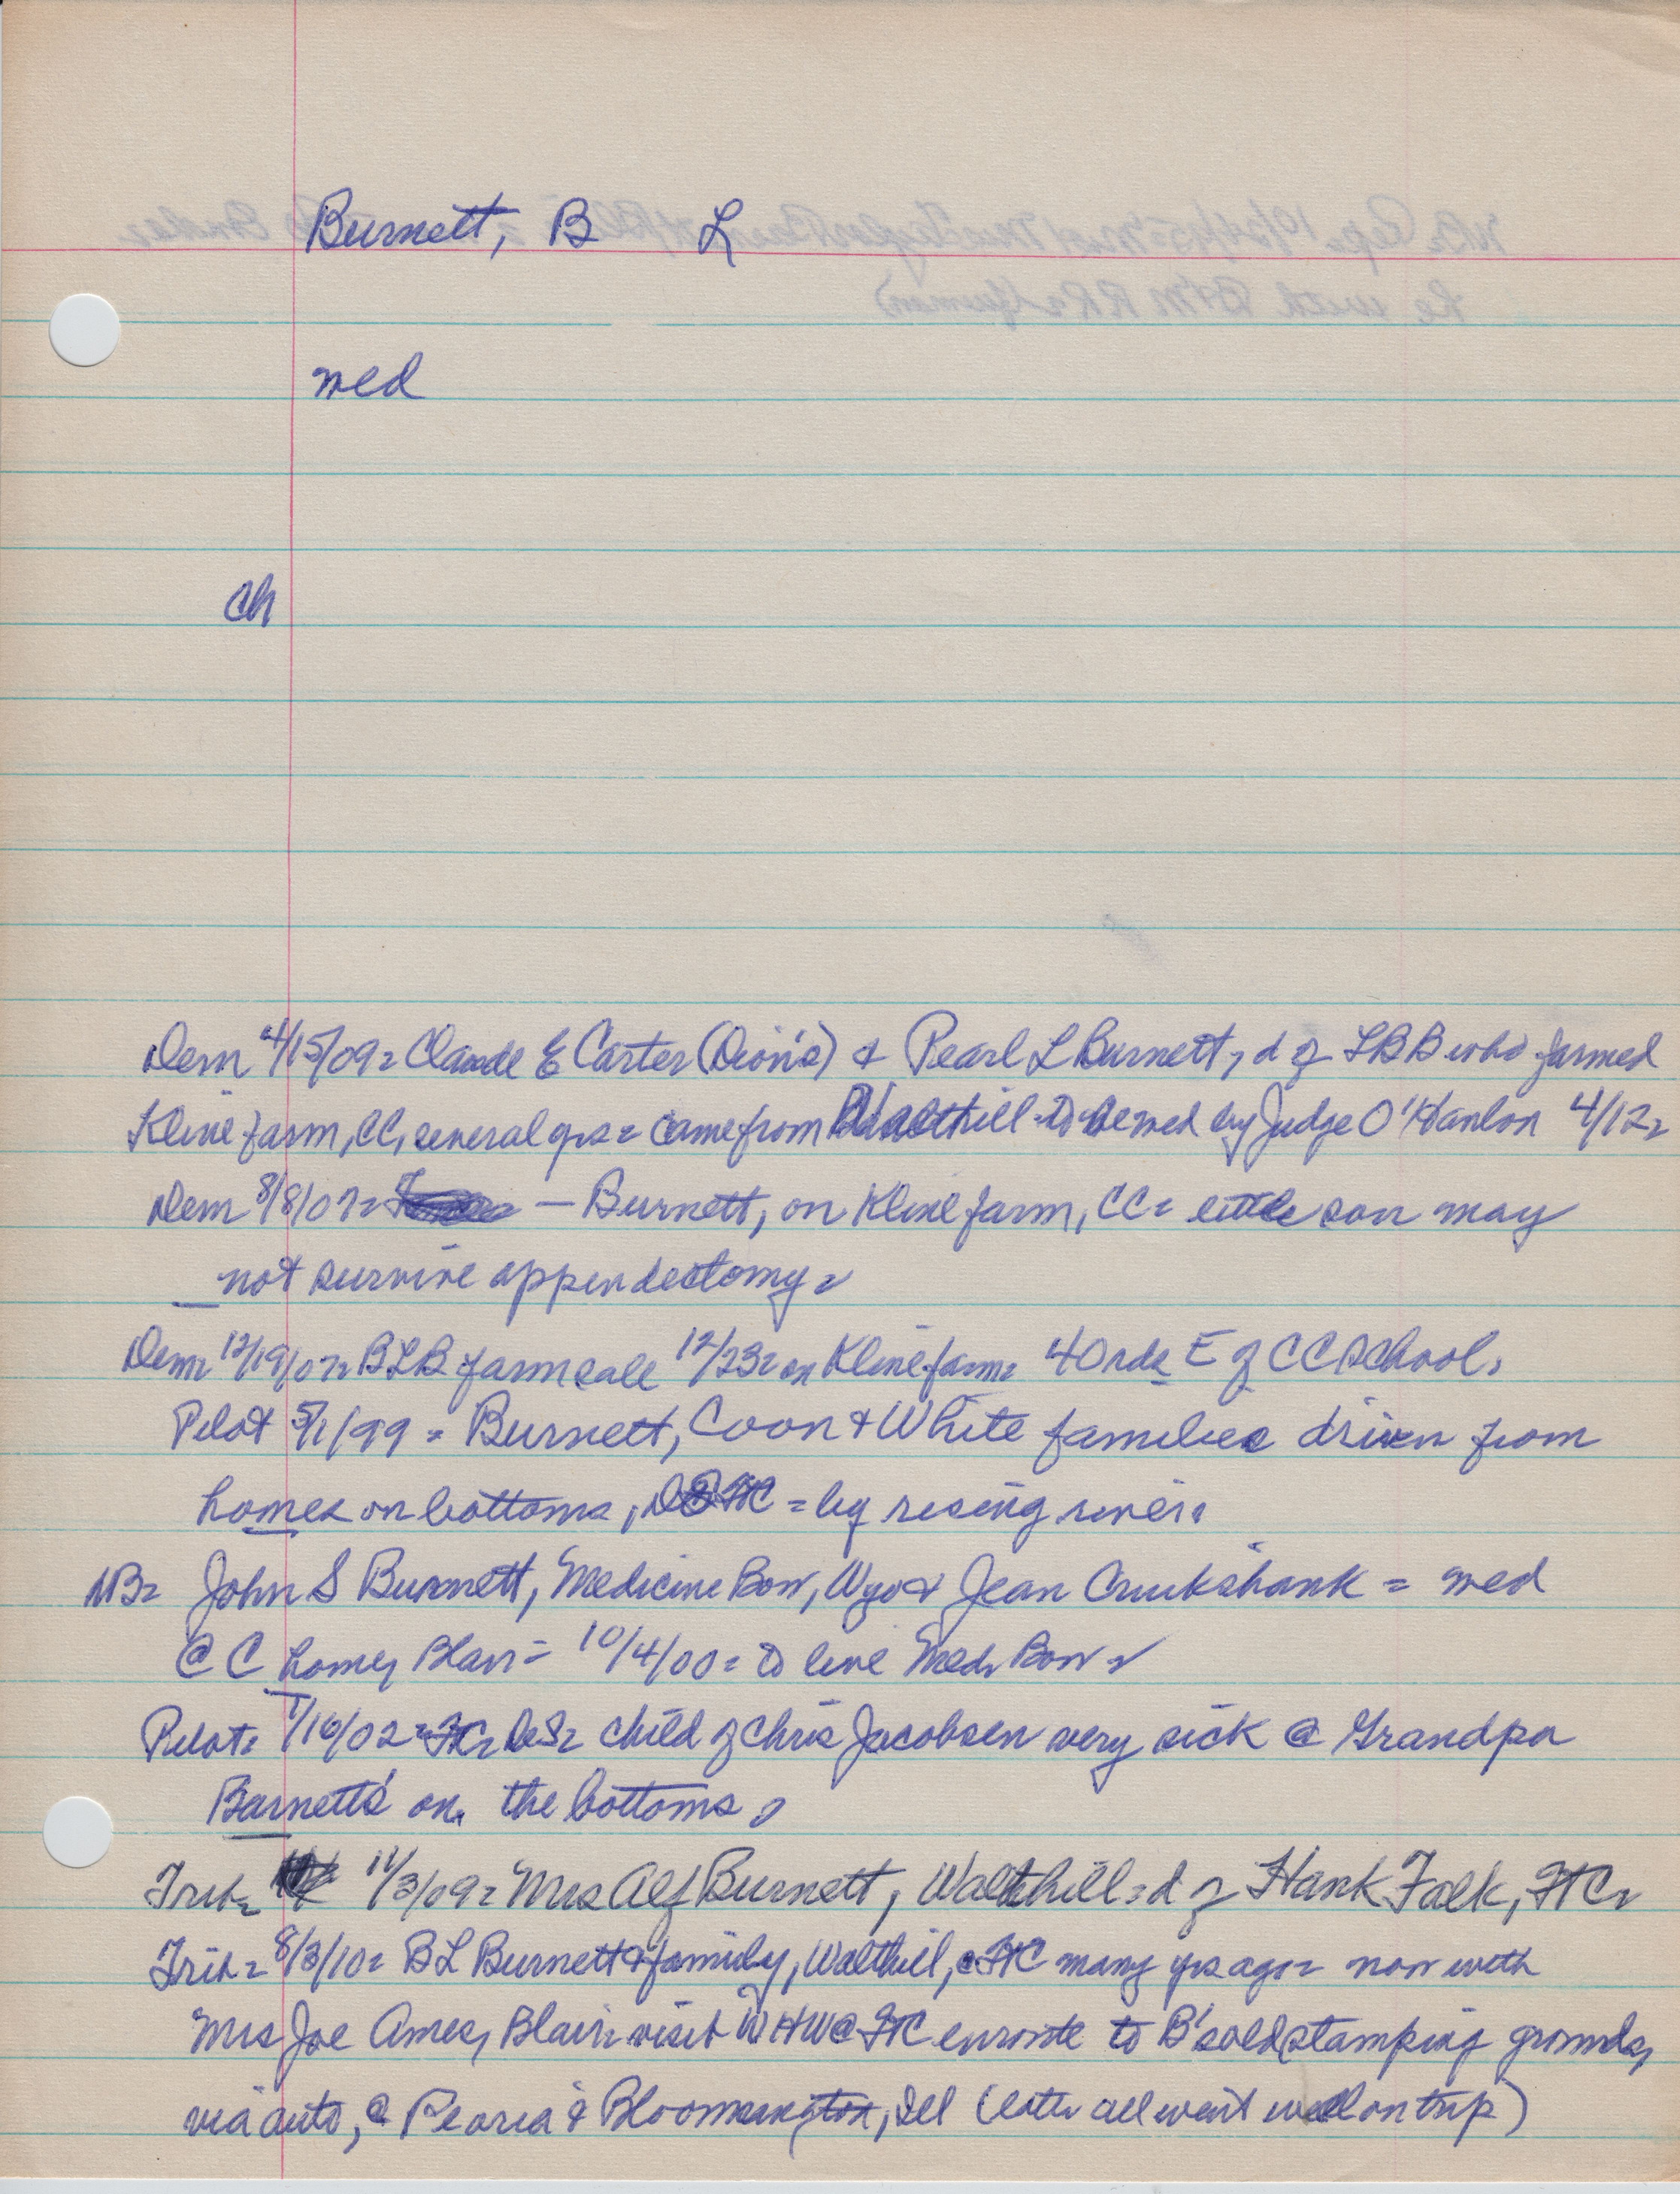 Burnett, B L
med
ch
Dem 4/15/09= Claude E Carter (Dion's) & Pearl L Burnett, d of LBB who farmed
Kline farm, CC, several yrs= came from Walthill to be med by Judge O'Hanlon 4/12=
Dem 8/8/07= — Burnett, on Kline farm, CC= little son may
not survive appendectomy=
Dem= 12/19/07= BLB farm sale 12/23= on Kline farm= 40 rds E of CC School.
Pilot 5/1/99 = Burnett, Coon & White families driven from
homes on bottoms, FTC = by rising river.
NB= John S Burnett, Medicine Bow, Wyo & Jean Cruikshank = med
@ C home, Blair= 10/4/00= to live Med. Bow=
Pilot= 1/16/02= FTC= DeS= child of Chris Jacobsen very sick @ Grandpa
Barnett's on the bottoms=
Trib= 11/3/09= Mrs Alf Burnett, Walthill= d of Hank Falk, FTC=
Trib= 8/3/10= B L Burnett & family, Walthill, FTC many yrs ago= now with
Mrs Joe Ames, Blair= visit WHW @ FTC enroute to B's old stamping grounds,
via auto, @ Peoria & Bloomington, Ill (later all went well on trip)